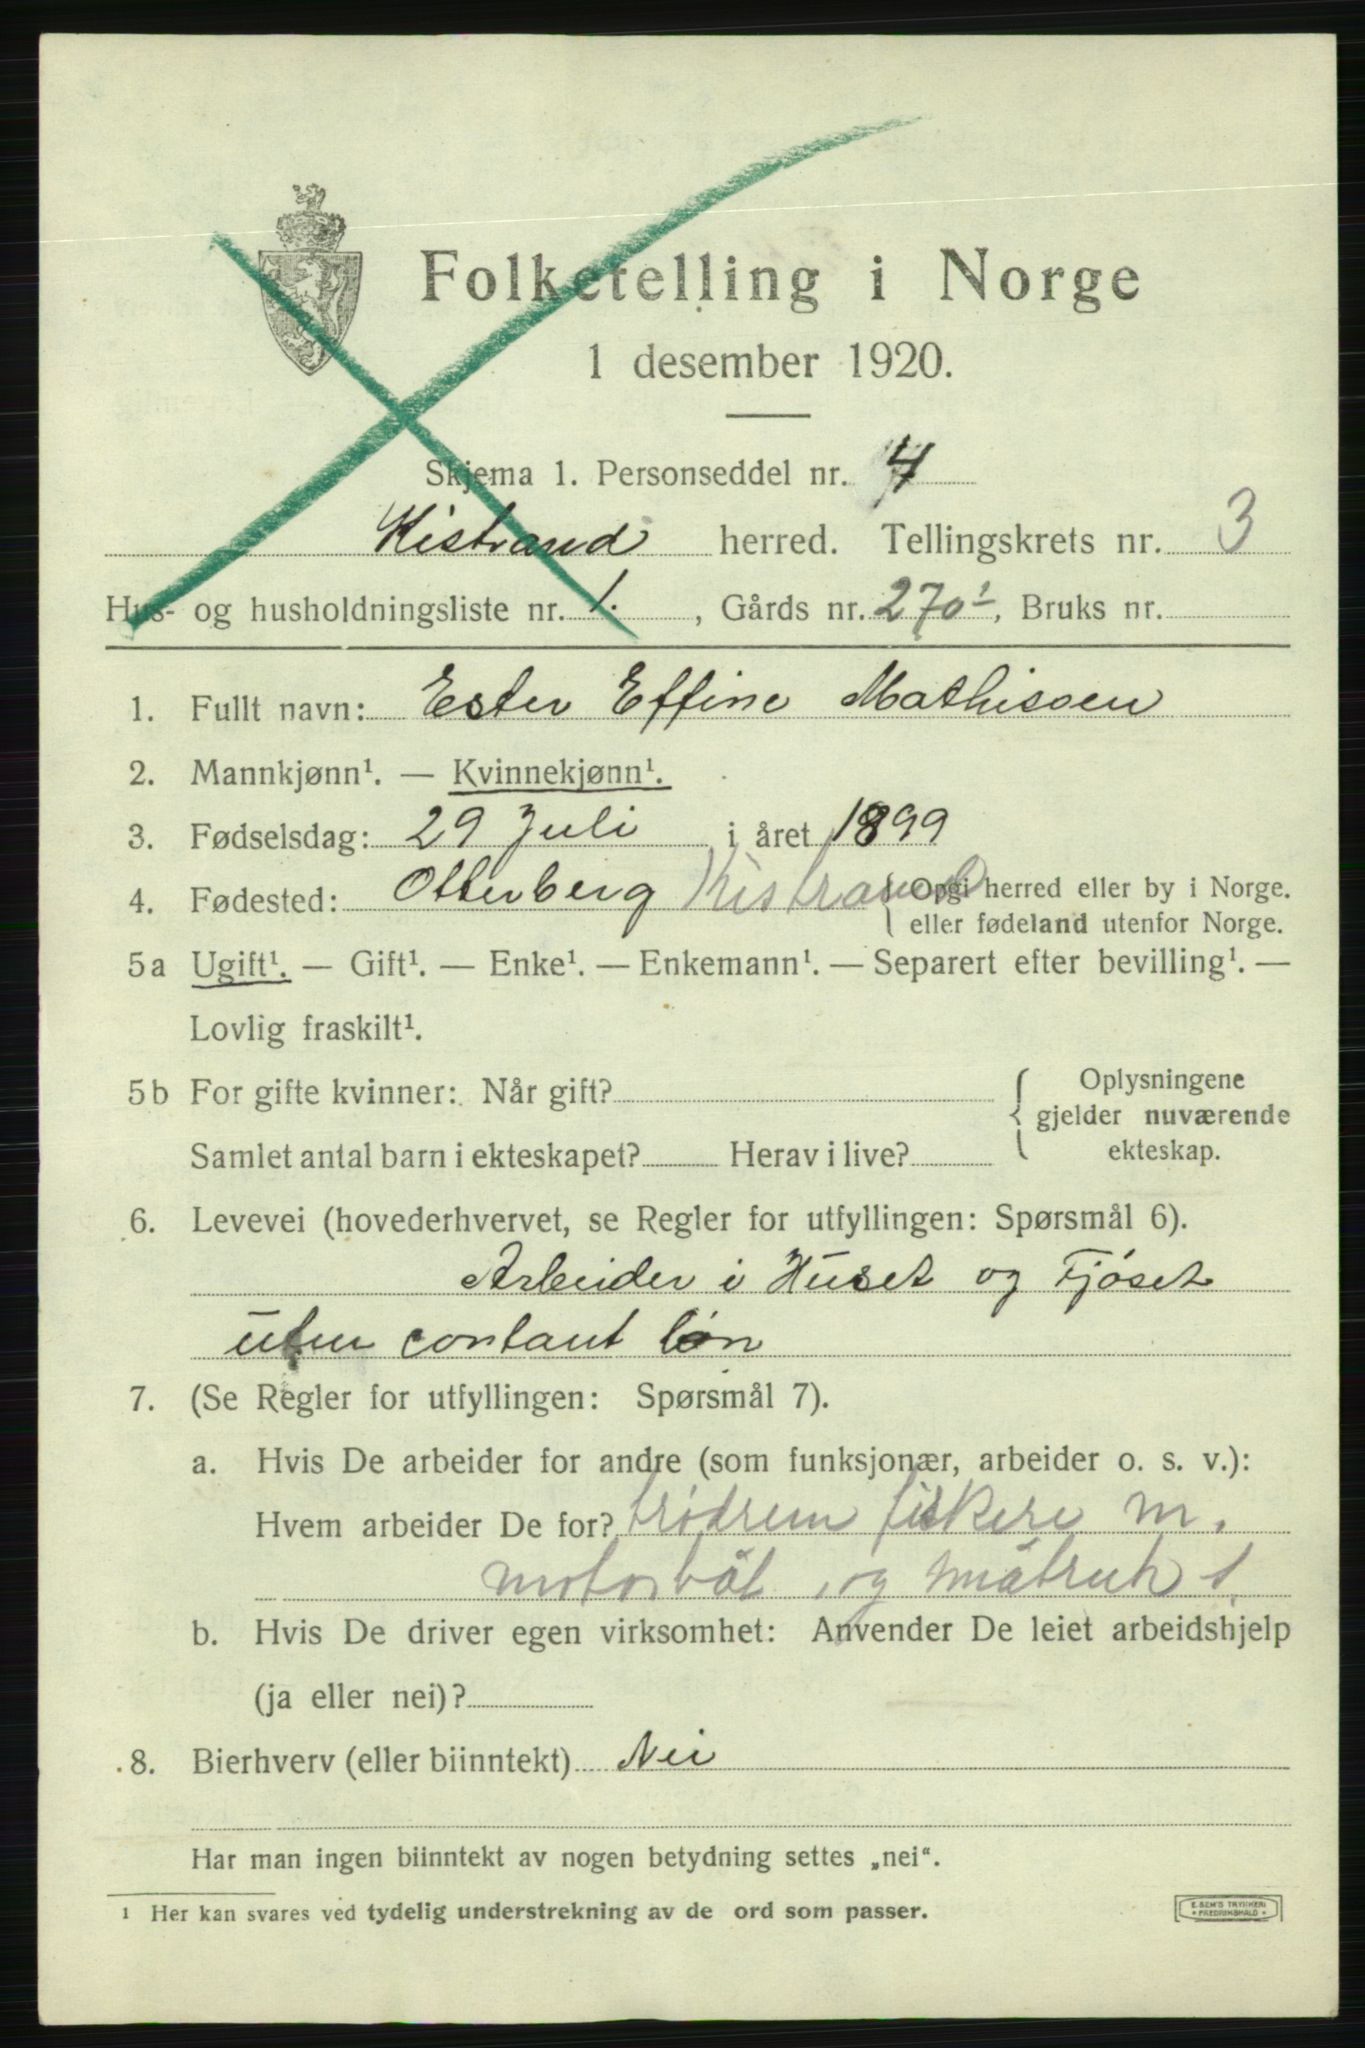 Folketelling i Norge
1 desember 1920.
Skjema 1. Personseddel nr. 4
Kistrand herred. Tellingskrets nr. 3
Hus- og husholdningsliste nr. 1. , Gårds nr. 270¹, Bruks nr.
1. Fullt navn: Ester Effine Mathissen
2. Mannkjønn¹. — Kvinnekjønn¹.
3. Fødselsdag: 29 Juli i året 1899
4. Fødested: Otterberg Kistrand { Opgi herred eller by i Norge.
eller fødeland utenfor Norge.
5a Ugift¹. — Gift¹. — Enke¹. — Enkemann¹. — Separert efter bevilling¹. —
Lovlig fraskilt¹.
5b For gifte kvinner: Når gift?
Samlet antal barn i ekteskapet? Herav i live?
Oplysningene
gjelder nuværende
ekteskap.
6. Levevei (hovederhvervet, se Regler for utfyllingen: Spørsmål 6).
Arbeider i Huset og Fjøset
uten contant løn
7. (Se Regler for utfyllingen: Spørsmål 7).
a. Hvis De arbeider for andre (som funksjonær, arbeider o. s. v.):
Hvem arbeider De for? fiskere m.
motorbåt og småbruk
b. Hvis De driver egen virksomhet: Anvender De leiet arbeidshjelp
(ja eller nei)?
8. Bierhverv (eller biinntekt) Nei
Har man ingen biinntekt av nogen betydning settes „nei“.
1 Her kan svares ved tydelig understrekning av de ord som passer.
E. SEM'S TRYKKERI
FREDRIKSHALD